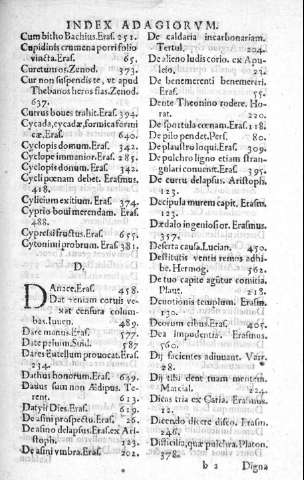 INDEX ADAGIORVM.
Cum bitho Bachius. Eras. 251.
Cupidinis crumena porri folio
vincta. Eras. 65.
Zenod. 373.
Cur non suspendiste, vt apud
Thebanos heros fias. Zenod.
637.
Currus boues trahit. Eras. 394.
Cycada, cycadæ, formicæ formi
cæ. Eras. 640.
Cyclopis donum. Eras. 342.
Cyclope immanior. Eras. 285.
Cyclopis donum. Eras. 342.
debet. Erasmus.
418.
exitium. Eras. 374.
Cyprio boui merendam. Eras.
688.
Cypressi fructus. Eras. 655.
probrum. Eras. 381.
D.
Danace. Eras. 458.
Dat veniam coruis ve-
xat censura colum-
bas. Iuuen. 489.
Dare manus. Eras. 577.
Suid. 587
Dares Entellum prouocat. Eras.
234.
Dathus bonorum. Eras. 649.
Dauus sum non Ædipus. Te-
rent. 613.
Datyli Dies. Eras. 619.
De asini prospectu. Eras. 26.
De asino delapsus. Eras. ex Ari-
stoph. 123.
De asini vmbra. Eras. 202.
De caldaria in carbonariam.
Tertul. 204.
De alieno ludis corio. ex Apu-
leio. 23.
De bene merenti bene merueris.
Eras. 55.
Dente Theonino rodere. Ho-
rat. 220.
De sportula cœnam. Eras. 118.
De pilo pendet. Pers. 80.
De plaustro loqui. Eras. 309.
De pulchro ligno etiam stran-
gulari conuenit. Eras. 395.
De curru delapsus. Aristoph.
123.
Decipula murem capit. Erasm.
123.
Dædalo ingeniosior. Erasmus.
357.
Deserta causa. Lucian. 450.
Destitutis ventis remos adhi-
be. Hermog. 562.
De tuo capite agitur comitia.
Plaut. 218.
Deuotionis templum. Erasm.
130.
Deorum cibus. Eras. 405.
Dea impudentia. Erasmus.
560.
Dij facientes adiuuant. Varr.
28.
Dij tibi dent tuam mentem.
Martial. 24.
Dicas tria ex Caria. Erasmus.
12.
Dicendo dicere disco. Erasm.
246.
Difficilia, quæ pulchra. Platon.
378.
b 2 Digna